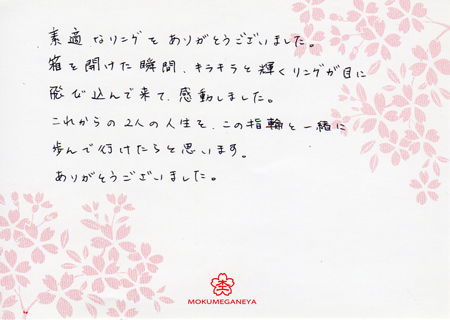 素適なリングをありがとうございました。
箱を開けた瞬間、キラキラと輝くリングが目に
飛び込んで来て、感動しました。
これからの2人の人生を、この指輪と一緒に
歩んで行けたらと思います。
ありがとうございました。
MOKUMEGANEYA